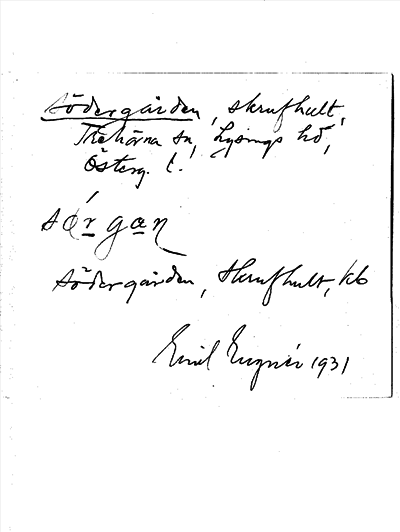 Södergården, Skrufhult,
Trehörna sn, Lysings hd,
Österg. l.
sørgan
Södergården, Skrufhult, kb
Emil 1931